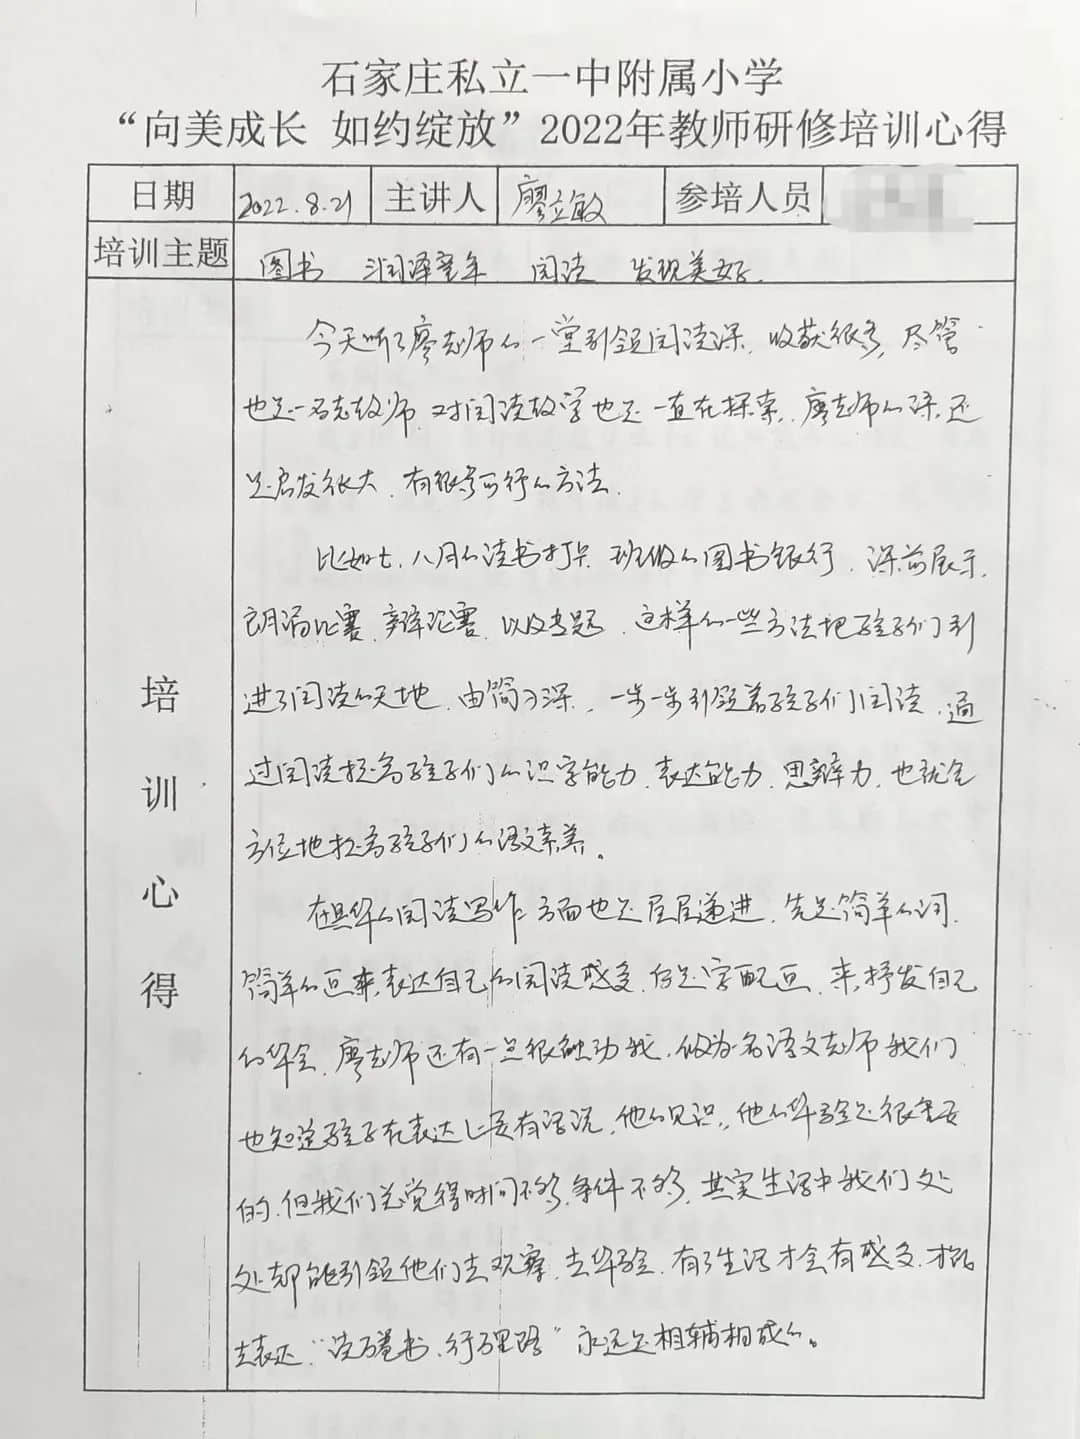 石家庄私立一中附属小学
“向美成长 如约绽放”2022年教师研修培训心得
日期 2022.8.21 主讲人 廖立敏 参培人员
培训主题 图书 润泽童年 阅读 发现美好.
培训心得
今天听了廖老师的一堂引领阅读课，收获很多，尽管
也是一名老教师，对阅读教学也是一直在探索，廖老师的课，还
是启发很大，有很多可行的方法.
比如七、八月的读书打卡，班级的图书银行，课前展示，
朗诵比赛，辩论赛，以及专题，这样的一些方法把孩子们引
进了阅读的天地，由简入深，一步一步引领着孩子们阅读，通
过阅读提高孩子们的识字能力，表达能力，思辨力，也就全
方位地提高孩子们的语文素养。
在具体的阅读写作方面也是层层递进，先是简单的词，
简单的画来表达自己的阅读感受，后是字配画，来抒发自己
的体会，廖老师还有一点很触动我，做为名语文老师我们
也知道孩子在表达上要有话说，他的见识，他的体验是很重要
的，但我们总觉得时间不够，条件不够，其实生活中我们处
处都能引领他们去观察，去体验，有了生活才会有感受，才能
去表达“读万卷书，行万里路”永远是相辅相成的。